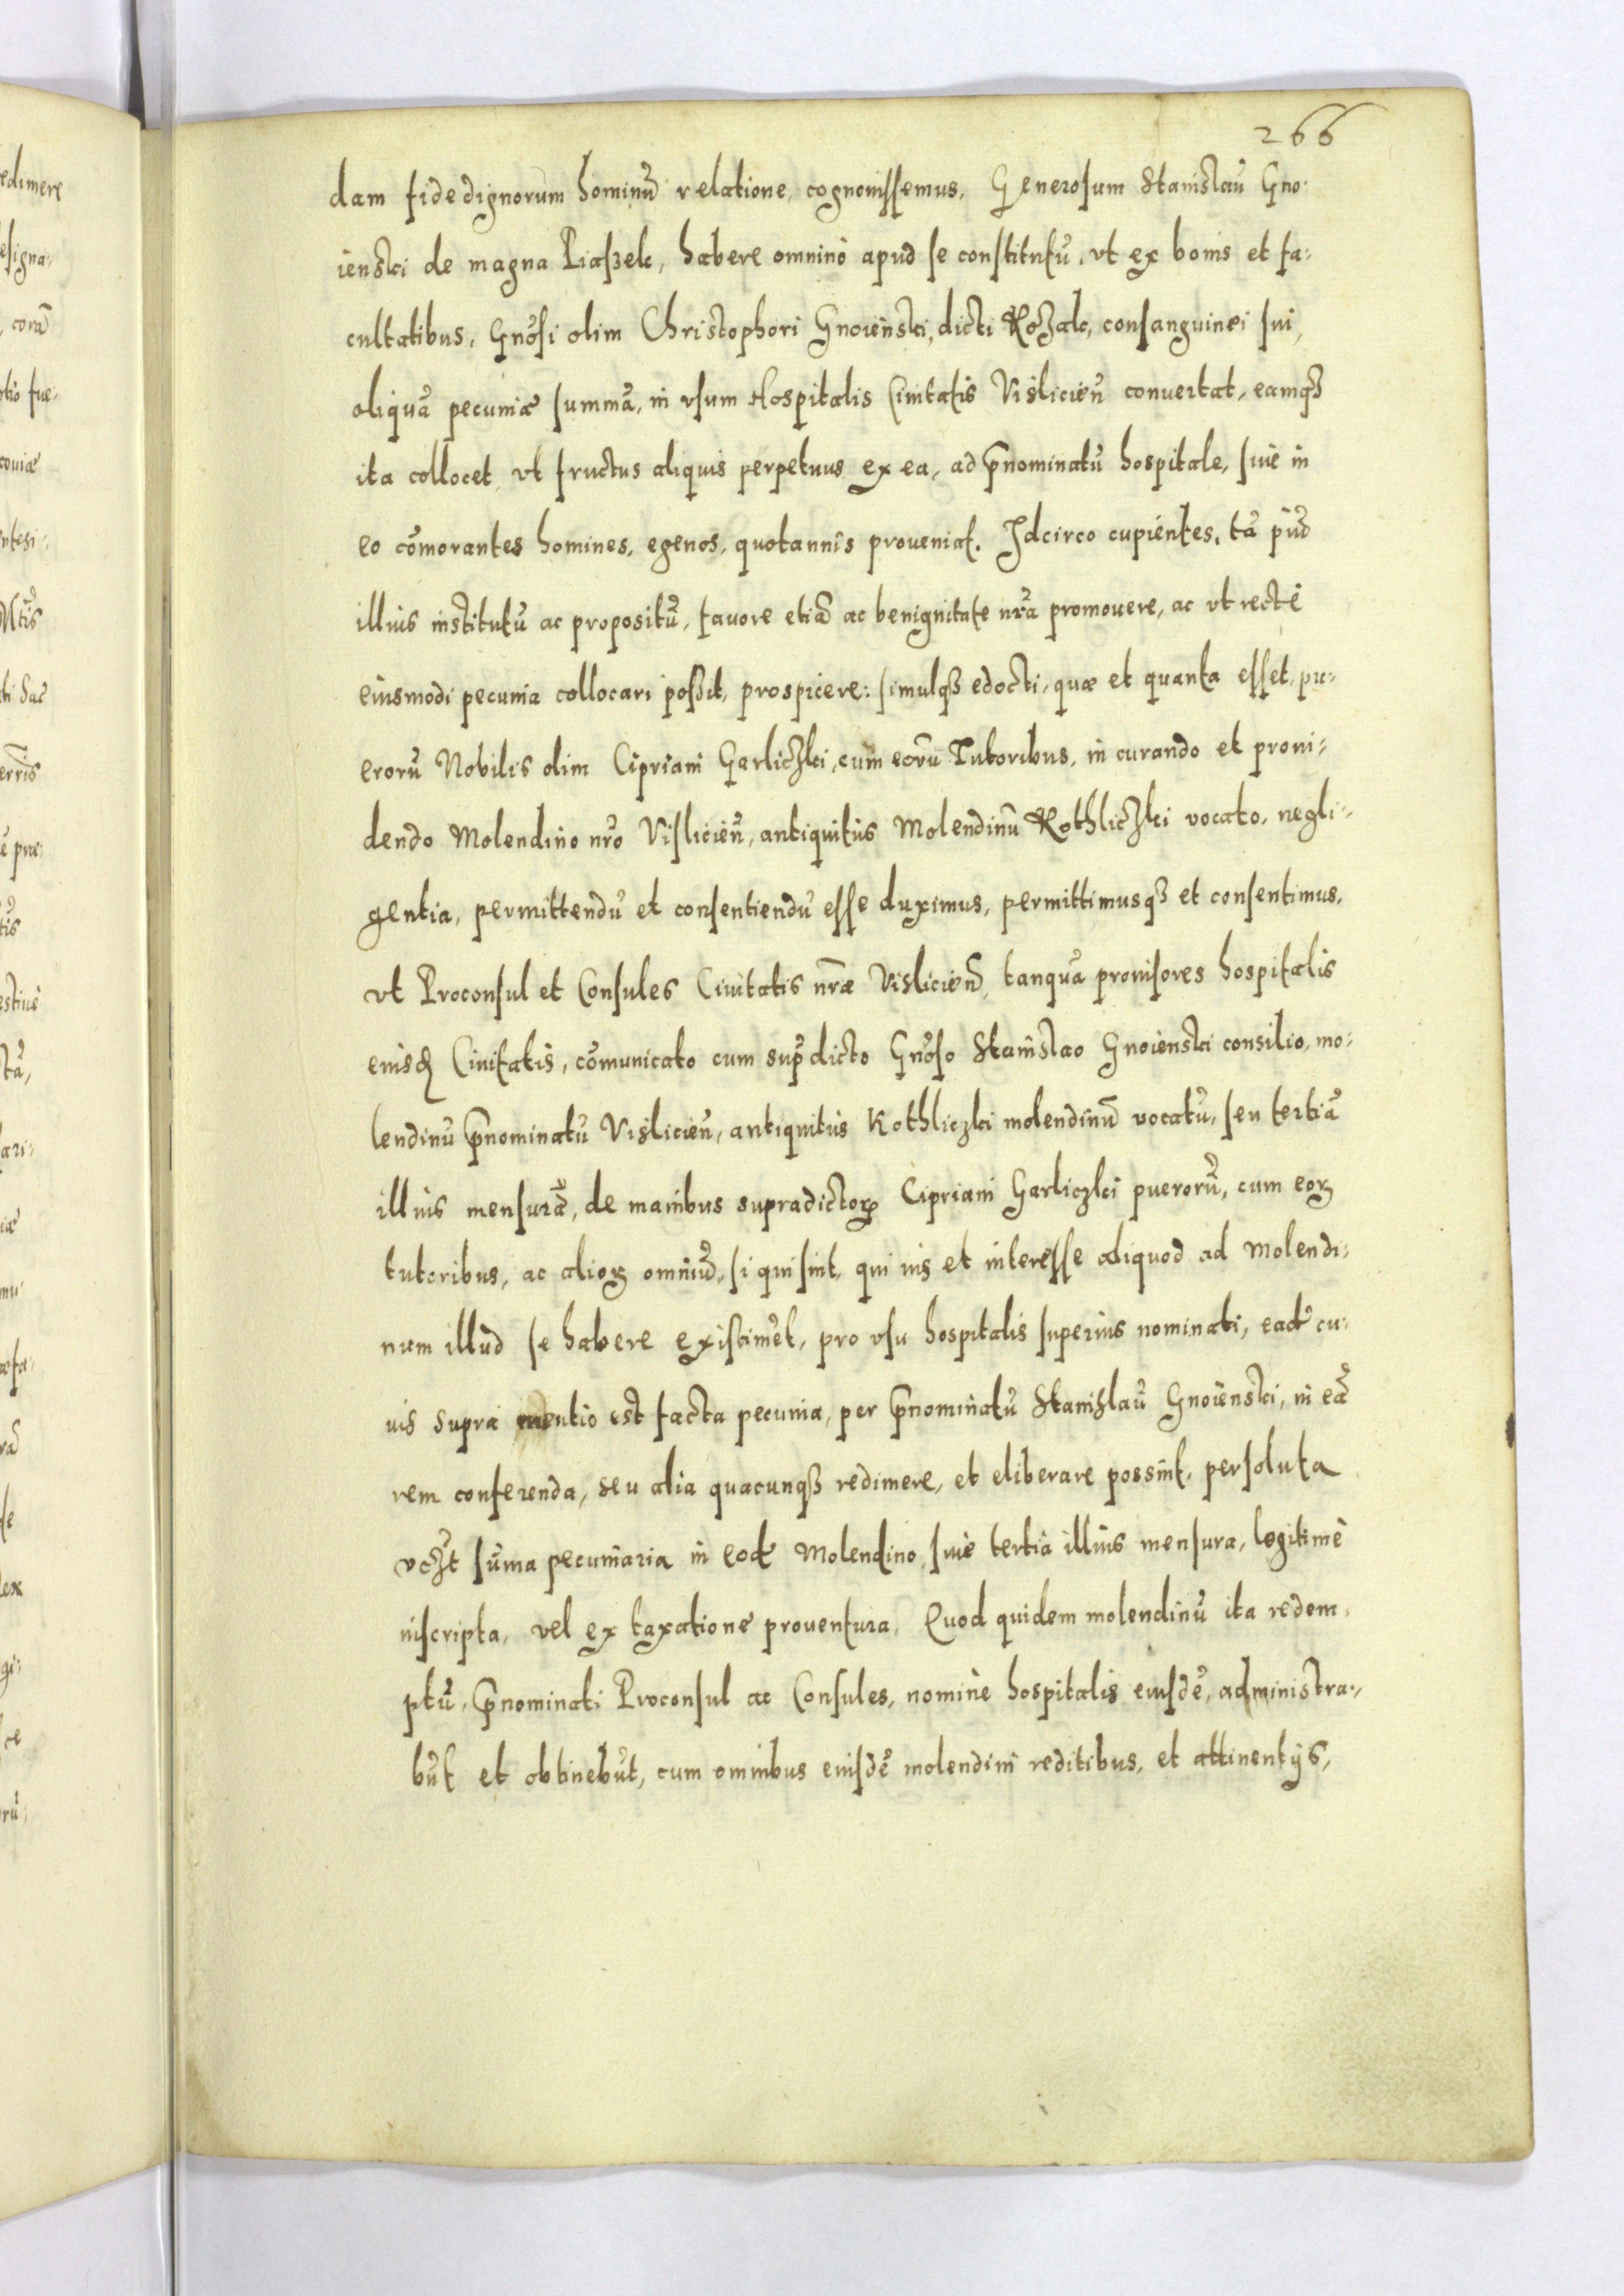 266
dam fidedignorum hominū relatione, cognouissemus, Generosum Stanislaū Gno-
ienski de magna Piaszek, habere omninò apud se constitutū, vt ex bonis et fa-
cultatibus, Gnōsi olim Christophori Gnoienski, dicti Kozak, consanguinei sui,
aliquā pecuniæ summā, in vsum Hospitalis Ciuitatis Vislicień conuertat, eamqȝ
ita collocet, vt fructus aliquis perpetuus ex ea, ad p̄nominatū hospitale, siue in
eo cōmorantes homines, egenos, quotannis proueniat. Idcirco cupientes, tā piū
illius institutū ac propositū, fauore etiā ac benignitate nr̄a promouere, ac vt rectè
eiusmodi pecunia collocari poßit, prospicere: simulqȝ edocti, quæ et quanta esset, pu-
erorū Nobilis olim Cipriani Garliczki, cum eorū Tutoribus, in curando et proui-
dendo Molendino nr̄o Vislicień, antiquitùs Molendinū Kothliczki vocato, negli-
gentia, permittendū et consentiendū esse duximus, permittimusqȝ et consentimus,
vt Proconsul et Consules Ciuitatis nr̄æ Vislicień, tanquā prouisores hospitalis
eiusd Ciuitatis, cōmunicato cum sup̄dicto Gnōso Stanislao Gnoienski consilio, mo-
lendinū p̄nominatū Vislicień, antiquitùs Kothliczki molendinū vocatū, seu tertiā
illius mensurā, de manibus supradictoꝝ Cipriani Garliczki puerorū, cum eoꝝ
tutoribus, ac alioꝝ omniū, si qui sint, qui ius et interesse aliquod ad Molendi-
num illud se habere existimēt, pro vsu hospitalis superius nominati, eadē cu-
uis supra mentio est facta pecunia, per p̄nominatū Stanislaū Gnoienski, in eā
rem conferenda, seu alia quacunqȝ redimere, et eliberare possint, persoluta
vczt sūma pecuniaria in eodē Molendino, siue tertia illius mensura, legitimè
inscripta, vel ex taxatione prouentura. Quod quidem molendinū ita redem-
ptū, p̄nominati Proconsul ac Consules, nomine hospitalis eiusdē, administra-
būt et obtinebūt, cum omnibus eiusdē molendini reditibus, et attinentijs,